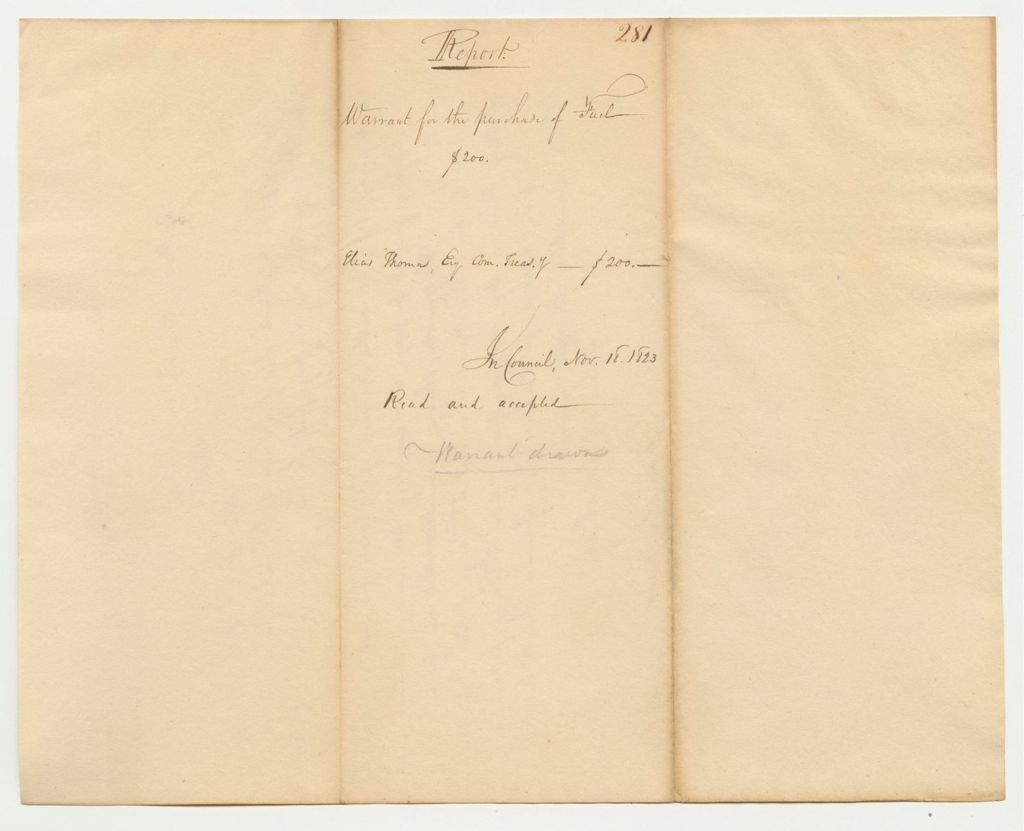 281
Report.
Warrant for the purchase of Fuel
$200.
Elias Thomas, Esq Com. Treas.y — $200.—
In Council, Nov. 18. 1823
Read and accepted
Warrant drawn